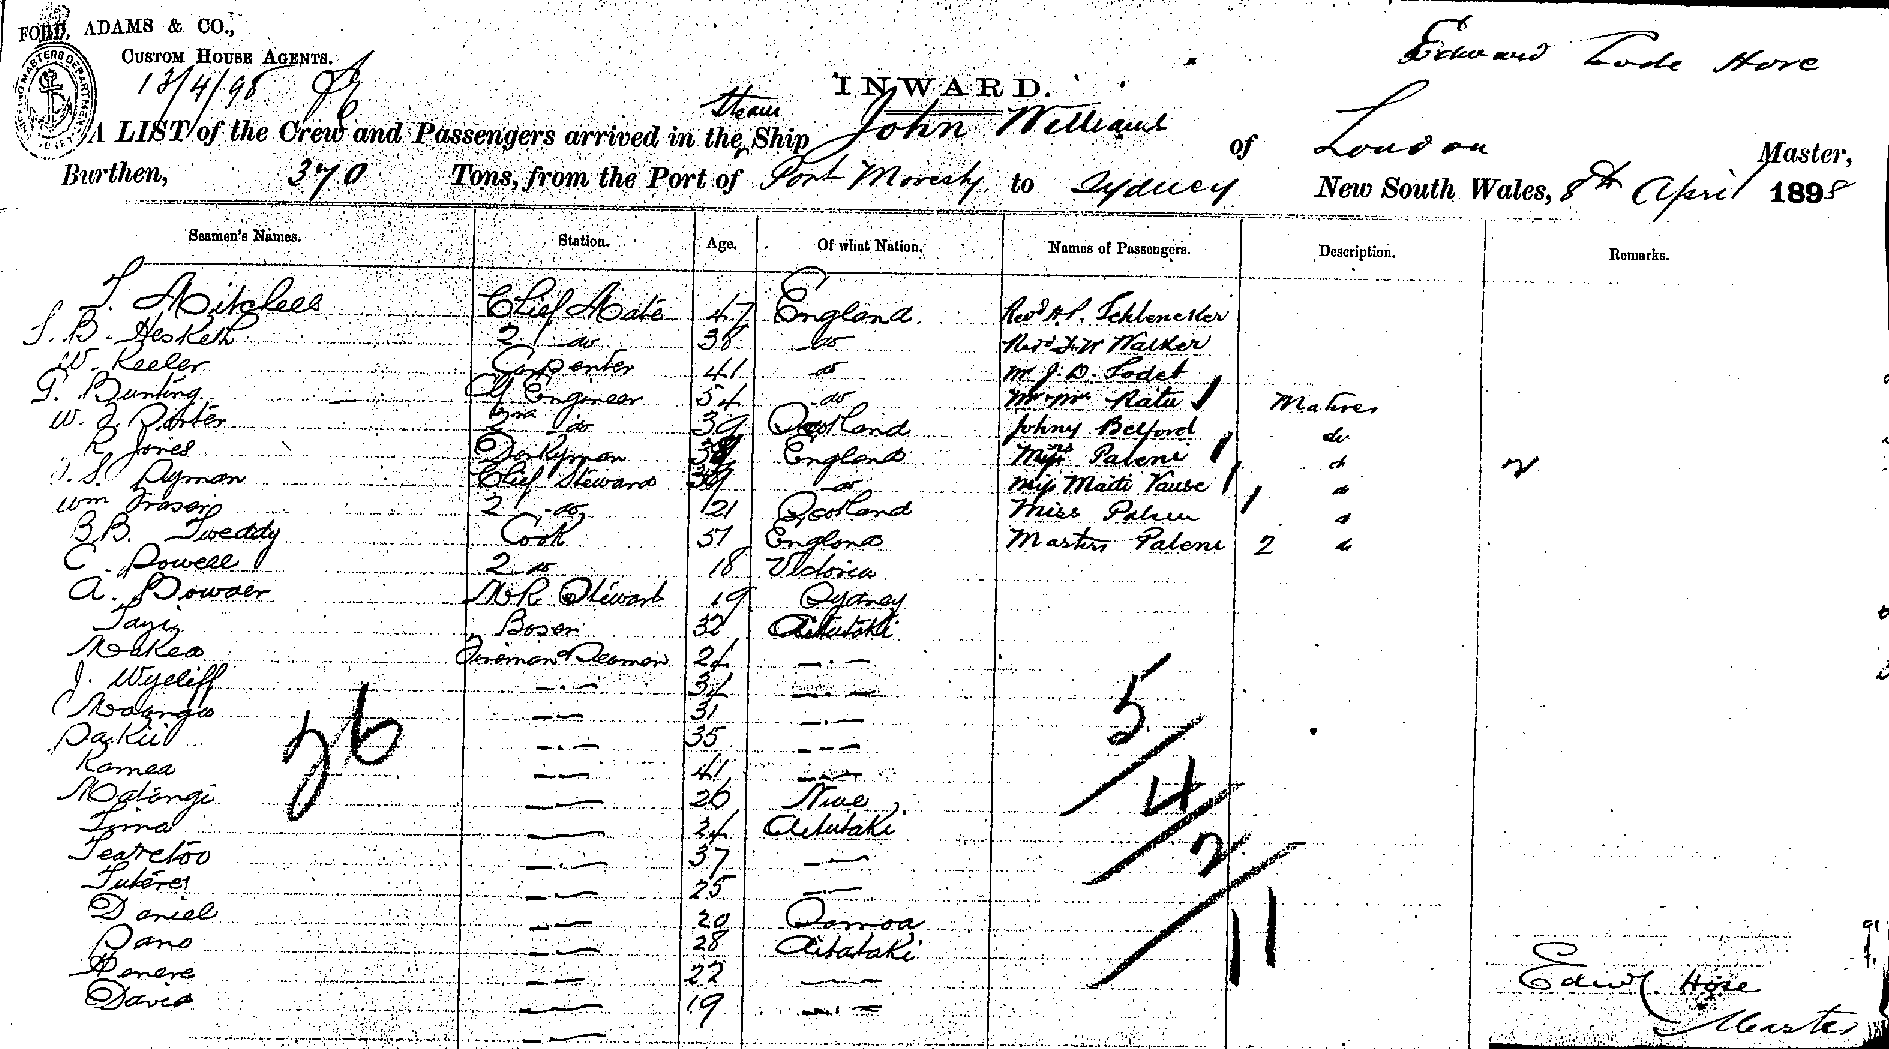 FORD, ADAMS & CO.,
CUSTOM HOUSE AGENTS.
13/4/98
INWARD.
Edward Code Hore
A LIST of the Crew and Passengers arrived in the Steam Ship John Williams of London Master,
Burthen, 370 Tons, from the Port of Port Moresby to Sydney New South Wales, 8th April 1898
Seamen's Names. Station. Age. Of what Nation. Names of Passengers. Description. Remarks.
T. Mitchell Chief Mate 47 England. Revd H.P. Schlencker
T. B. Hesketh 2 do 38 do Revd F.W. Walker
W. Keeler Carpenter 41 do Mr J. D.
G. Bunting Engineer 54 do Ratu Natives
W. J. Porter 2 do 39 Scotland Johny Belford do
R. Jones Donkyman England Palene do 2
S. Dyman Chief Steward 39 do Miss do
Wm Fraser 2 do 21 Scotland Miss 1 do
B.B. Tweddy Cook 51 England Masters Palene 2 do
C. Powell 2 do 18 Victoria
A. Bowder M.R. Stewart 19 Sydney
Bosen 32 Aitutaki
Makea Fireman & Seaman 24 — " —
J. Wycliff — " — 34 — " —
— " — 31 — " —
— " — 35 — " —
Kamea — " — 41 — " —
Matangi — " — 26 Niue
Toma — " — 24 Aitutaki
— " — 37 — " —
— " — 25 — " —
Daniel — " — 20 Samoa
— " — 28 Aitutaki
— " — 22 — " —
David — " — 19 — " —
26
5
4
2
11
Edwd. Hore
Master